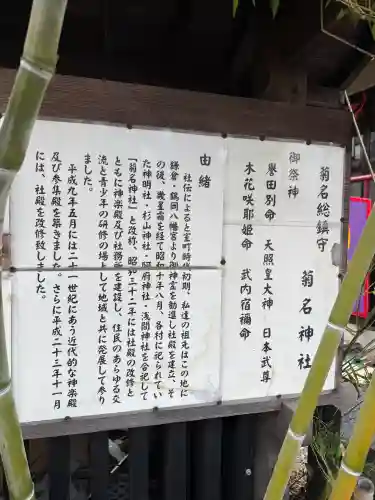 菊名総鎮守 菊名神社
御祭神
誉田別命 天照皇大神 日本武尊
木花咲耶姫命 武内宿禰命
由緒
社伝によると室町時代初期、私達の祖先はこの地に
鎌倉・鶴岡八幡宮より御神霊を勧進し社殿を建立、そ
の後、幾星霜を経て昭和十年八月、各村に祀られてい
た神明社・杉山神社・阿府神社・浅間神社を合祀して
「菊名神社」と改称、昭和三十二年には社殿の改修と
ともに神楽殿及び社務所を建設し、住民のあらゆる交
流と青少年の研修の場として地域と共に発展して参り
ました。
平成九年五月には二十一世紀にあう近代的な神楽殿
及び参集殿を築きました。さらに平成二十三年十一月
には、社殿を改修致しました。